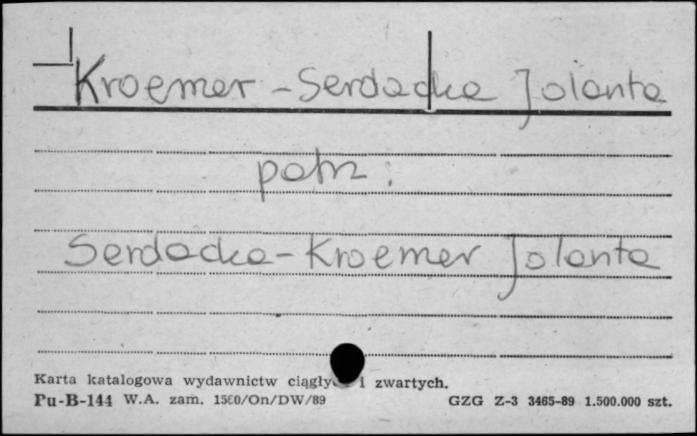 Kroemer - Serdacka Jolanta
patrz:
Serdacka - Kroemer Jolanta
Karta katalogowa wydawnictw i zwartych.
Pu-B-144 W.A. zam. 1560/On/DW/89 GZG Z-3 3465-89 1.500.000 szt.